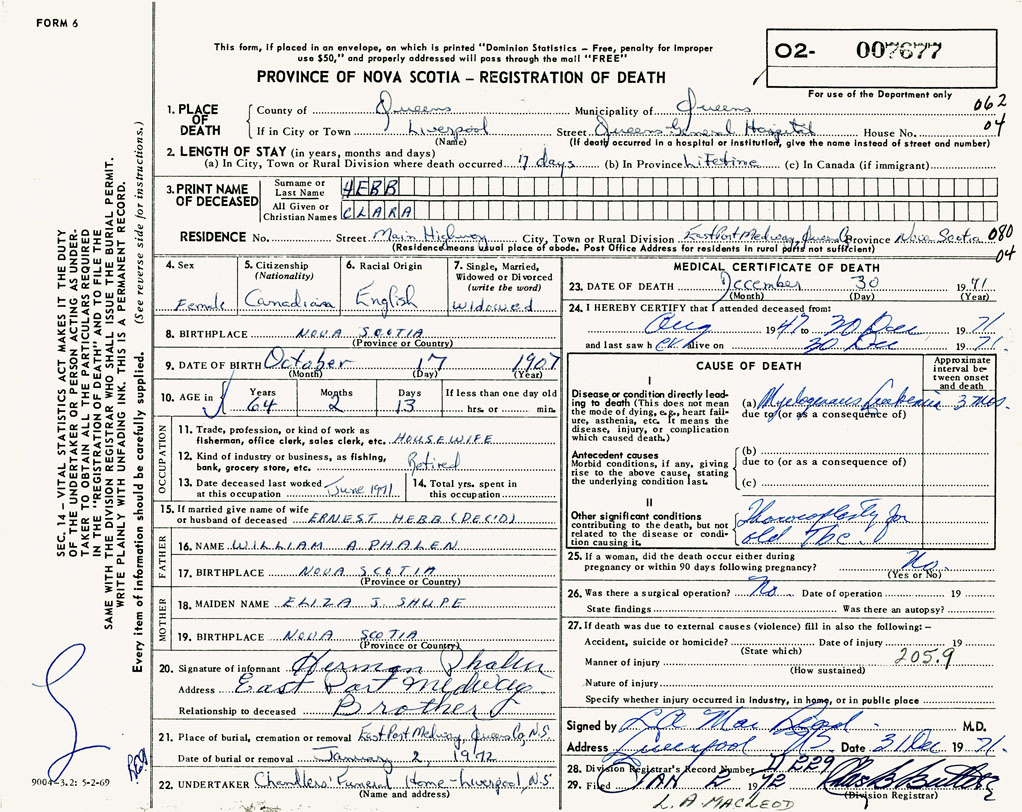 FORM 6
This form, if placed in an envelope, on which is printed "Dominion Statistics – Free, penalty for improper
use $50," and properly addressed will pass through the mail "FREE"
PROVINCE OF NOVA SCOTIA – REGISTRATION OF DEATH
02- 007677
For use of the Department only
062
04
1. PLACE OF DEATH
County of Queens Municipality of Queens
If in City or Town Liverpool Street Queens General Hospital House No.
(Name) (If death occurred in a hospital or institution, give the name instead of street and number)
2. LENGTH OF STAY (in years, months and days)
(a) In City, Town or Rural Division where death occurred 17 days (b) In Province Lifetime (c) In Canada (if immigrant)
3. PRINT NAME OF DECEASED
Surname or Last Name HEBB
All Given or Christian Names CLARA
RESIDENCE No. Street Main Highway City, Town or Rural Division East Port Medway, Queens Co Province Nova Scotia 080
(Residence means usual place of abode. Post Office Address for residents in rural parts not sufficient) 04
4. Sex Female
5. Citizenship (Nationality) Canadian
6. Racial Origin English
7. Single, Married, Widowed or Divorced (write the word) Widowed
8. BIRTHPLACE NOVA SCOTIA
(Province or Country)
9. DATE OF BIRTH October 17 1907
(Month) (Day) (Year)
10. AGE in Years 64 Months 2 Days 13 If less than one day old hrs. or min.
OCCUPATION
11. Trade, profession, or kind of work as
fisherman, office clerk, sales clerk, etc. HOUSEWIFE
12. Kind of industry or business, as fishing,
bank, grocery store, etc. Retired
13. Date deceased last worked at this occupation June 1971
14. Total yrs. spent in this occupation
15. If married give name of wife
or husband of deceased ERNEST HEBB (DEC'D)
FATHER
16. NAME WILLIAM A PHALEN
17. BIRTHPLACE NOVA SCOTIA
(Province or Country)
MOTHER
18. MAIDEN NAME ELIZA J. SHUPE
19. BIRTHPLACE NOVA SCOTIA
(Province or Country)
20. Signature of informant Herman Phalen
Address East Port Medway
Relationship to deceased Brother
21. Place of burial, cremation or removal East Port Medway, Queens Co, N.S.
Date of burial or removal January 2, 1972
22. UNDERTAKER Chandlers' Funeral Home - Liverpool, N.S
(Name and address)
MEDICAL CERTIFICATE OF DEATH
23. DATE OF DEATH December 30 1971
(Month) (Day) (Year)
24. I HEREBY CERTIFY that I attended deceased from:
Aug 1947 to 30 Dec 1971
and last saw her alive on 30 Dec 1971.
CAUSE OF DEATH
Approximate interval between onset and death
I
Disease or condition directly leading to death (This does not mean the mode of dying, e.g., heart failure, asthenia, etc. It means the disease, injury, or complication which caused death.)
(a) Myelogenous Leukemia 3 mos.
due to (or as a consequence of)
Antecedent causes
Morbid conditions, if any, giving rise to the above cause, stating the underlying condition last.
(b)
due to (or as a consequence of)
(c)
II
Other significant conditions
contributing to the death, but not related to the disease or condition causing it.
Thoracoplasty for
old Tbc.
25. If a woman, did the death occur either during
pregnancy or within 90 days following pregnancy? No.
(Yes or No)
26. Was there a surgical operation? No Date of operation 19
State findings Was there an autopsy?
27. If death was due to external causes (violence) fill in also the following: –
Accident, suicide or homicide? Date of injury 19
(State which) 205.9
Manner of injury
(How sustained)
Nature of injury
Specify whether injury occurred in industry, in home, or in public place
Signed by L A MacLeod M.D.
Address Liverpool NS Date 31 Dec 1971.
28. Division Registrar's Record Number 229
29. Filed JAN 2 1972
(Division Registrar)
L. A MACLEOD
SEC. 14 – VITAL STATISTICS ACT MAKES IT THE DUTY
OF THE UNDERTAKER OR PERSON ACTING AS UNDER-
TAKER TO OBTAIN ALL THE PARTICULARS REQUIRED
IN THE "REGISTRATION OF DEATH" AND TO FILE THE
SAME WITH THE DIVISION REGISTRAR WHO SHALL ISSUE THE BURIAL PERMIT.
WRITE PLAINLY WITH UNFADING INK. THIS IS A PERMANENT RECORD.
Every item of information should be carefully supplied. (See reverse side for instructions.)
9004-3.2: 5-2-69